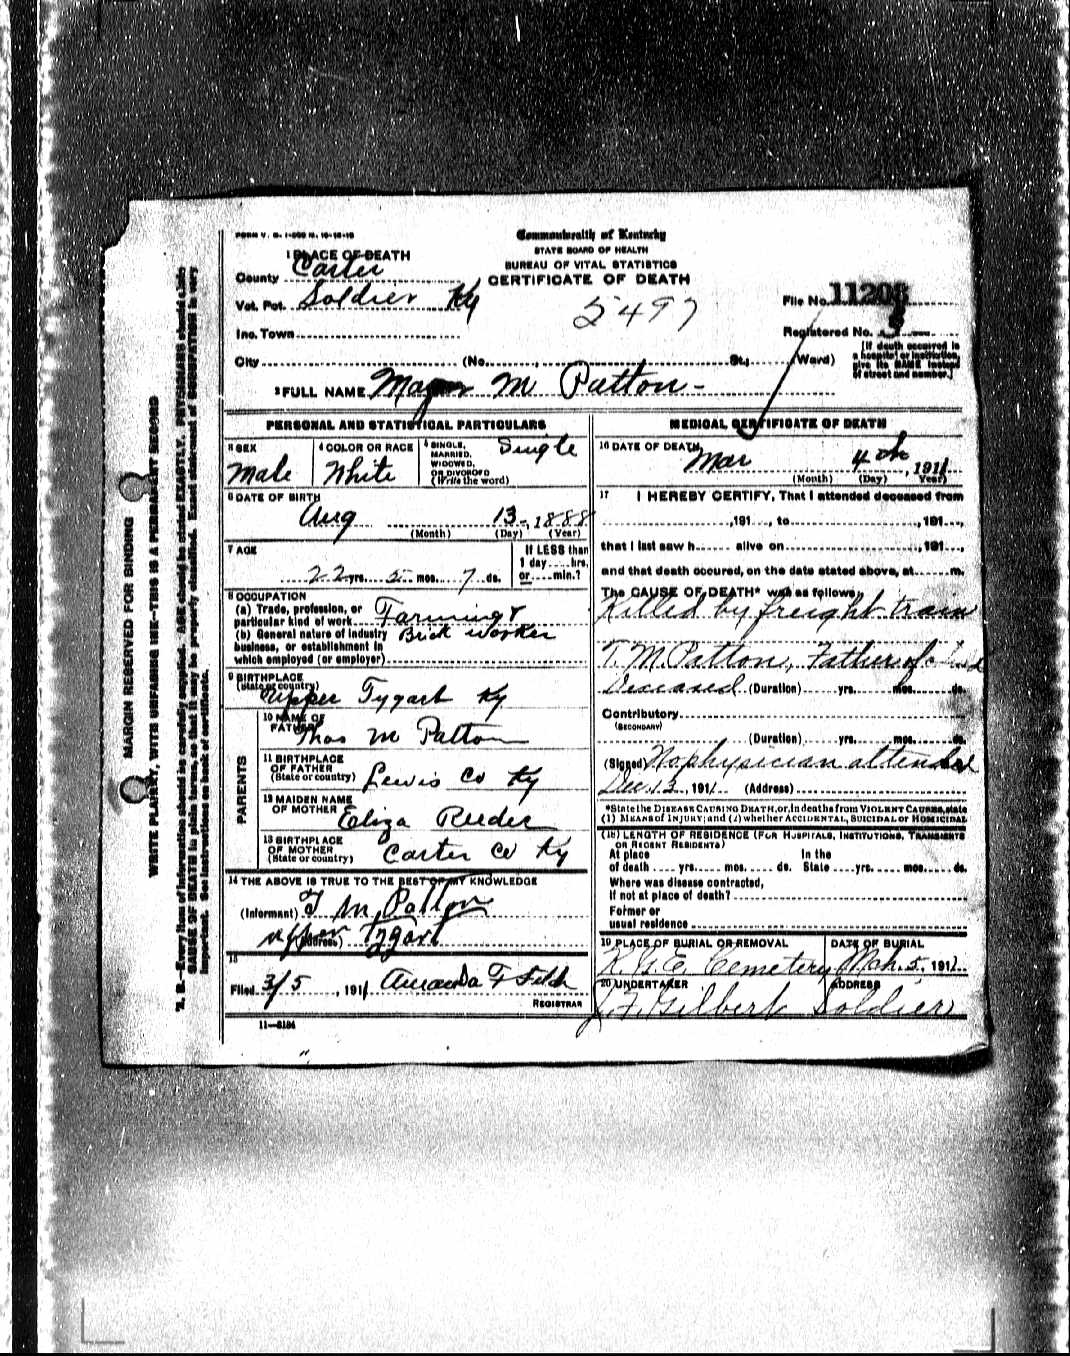 FORM V. S. 1-
Commonwealth of Kentucky
STATE BOARD OF HEALTH
BUREAU OF VITAL STATISTICS
CERTIFICATE OF DEATH
1 PLACE OF DEATH
County Carter
Vot. Pct. Soldier Ky
Inc. Town
City (No. , St.; Ward)
5497
File No. 11208
Registered No.
[If death occurred in
a hospital or institution,
give its NAME instead
of street and number.]
2 FULL NAME M Patton -
PERSONAL AND STATISTICAL PARTICULARS
3 SEX
Male
4 COLOR OR RACE
White
5 SINGLE,
MARRIED,
WIDOWED,
OR DIVORCED
(Write the word)
Single
6 DATE OF BIRTH
Aug 13-, 1888
(Month) (Day) (Year)
7 AGE
22 yrs. 5 mos. 7 ds.
If LESS than
1 day .... hrs.
or .... min.?
8 OCCUPATION
(a) Trade, profession, or
particular kind of work Farming &
(b) General nature of industry
business, or establishment in
which employed (or employer)
Brick worker
9 BIRTHPLACE
(State or country)
Upper Tygart Ky
PARENTS
10 NAME OF
FATHER
Thos M Patton
11 BIRTHPLACE
OF FATHER
(State or country) Lewis Co Ky
12 MAIDEN NAME
OF MOTHER
Eliza Reeder
13 BIRTHPLACE
OF MOTHER
(State or country) Carter Co Ky
14 THE ABOVE IS TRUE TO THE BEST OF MY KNOWLEDGE
(Informant) T M Patton
(Address) upper Tygart
15
Filed 3/5, 1911 Amanda F
REGISTRAR
11-3184
MEDICAL CERTIFICATE OF DEATH
16 DATE OF DEATH
Mar 4th, 1911
(Month) (Day) (Year)
17 I HEREBY CERTIFY, That I attended deceased from
, 191..., to , 191...,
that I last saw h...... alive on , 191...,
and that death occured, on the date stated above, at......m.
The CAUSE OF DEATH* was as follows:
Killed by freight train
T. M Patton, Father of
Deceased (Duration) yrs. mos. ds.
Contributory
(SECONDARY)
(Duration) yrs. mos. ds.
(Signed) No physician attended
Dec. 13, 1911 (Address)
*State the DISEASE CAUSING DEATH, or, in deaths from VIOLENT CAUSES, state
(1) MEANS OF INJURY; and (2) whether ACCIDENTAL, SUICIDAL or HOMICIDAL
(18) LENGTH OF RESIDENCE (FOR HOSPITALS, INSTITUTIONS, TRANSIENTS
OR RECENT RESIDENTS)
At place In the
of death .... yrs. .... mos. .... ds. State .... yrs. .... mos. .... ds.
Where was disease contracted,
if not at place of death?
Former or
usual residence
19 PLACE OF BURIAL OR REMOVAL
Cemetery
DATE OF BURIAL
Mch. 5, 1911
20 UNDERTAKER
J. F. Gilbert
ADDRESS
Soldier
MARGIN RESERVED FOR BINDING
WRITE PLAINLY, WITH UNFADING INK—THIS IS A PERMANENT RECORD
N. B.—Every item of information should be carefully supplied. AGE should be stated EXACTLY. PHYSICIANS should state
CAUSE OF DEATH in plain terms, so that it may be properly classified. Exact statement of OCCUPATION is very
important. See instructions on back of certificate.